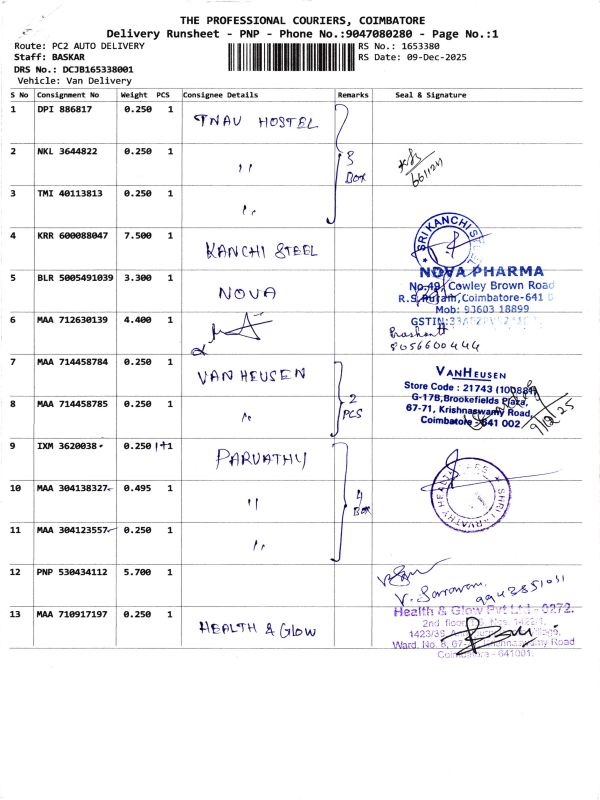 THE PROFESSIONAL COURIERS, COIMBATORE
Delivery Runsheet - PNP - Phone No.:9047080280 - Page No.:1
Route: PC2 AUTO DELIVERY RS No.: 1653380
Staff: BASKAR RS Date: 09-Dec-2025
DRS No.: DCJB165338001
Vehicle: Van Delivery
S No Consignment No Weight PCS Consignee Details Remarks Seal & Signature
1 DPI 886817 0.250 1 TNAU HOSTEL
2 NKL 3644822 0.250 1 〃 3 BOX
3 TMI 40113813 0.250 1 〃
4 KRR 600088047 7.500 1 KANCHI STEEL SRI KANCHI
5 BLR 5005491039 3.300 1 NOVA
NOVA PHARMA
No.49, Cowley Brown Road
R.S.Puram, Coimbatore-641
Mob: 93603 18899
GSTIN:
6 MAA 712630139 4.400 1
Prashanth
8056600444
7 MAA 714458784 0.250 1 VAN HEUSEN
8 MAA 714458785 0.250 1 〃 2 PCS
VANHEUSEN
Store Code : 21743 (100881)
G-17B,Brookefields Plaza,
67-71, Krishnaswamy Road,
Coimbatore - 641 002
9/12/25
9 IXM 3620038 0.250 1+1 PARVATHY
10 MAA 304138327 0.495 1 〃 4 BOX
11 MAA 304123557 0.250 1 〃
12 PNP 530434112 5.700 1
V. Saravanan
9943851031
13 MAA 710917197 0.250 1 HEALTH & GLOW
Health & Glow Pvt Ltd - 0272.
2nd floor,
1423/39,
Ward. No. 8, Krishnaswamy Road
Coimbatore - 641001.